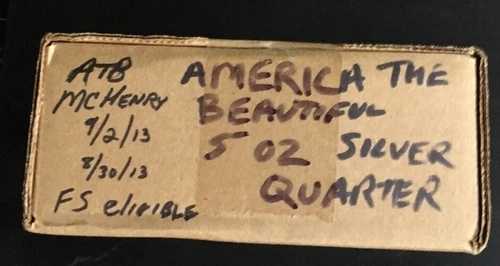 ATB
MCHENRY
9/2/13
8/30/13
FS eligible
AMERICA THE
BEAUTIFUL
5 OZ SILVER
QUARTER